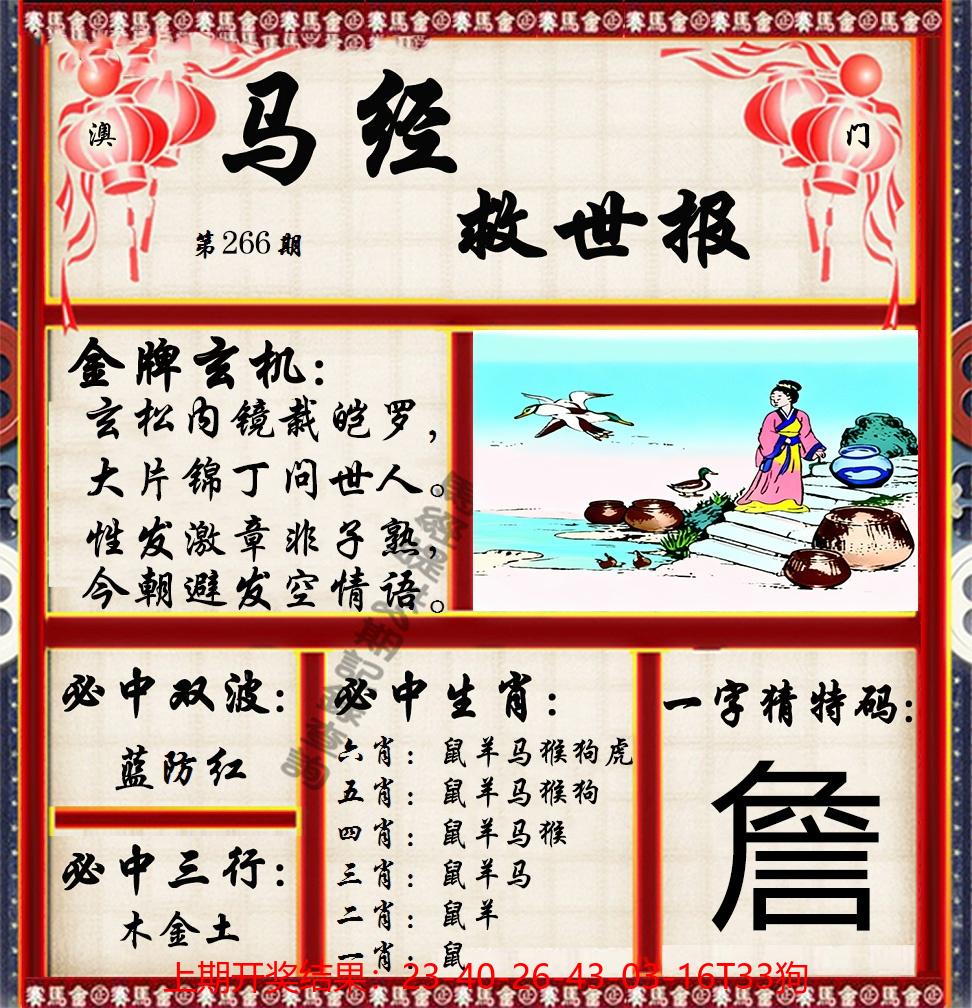 賽馬會
澳 门
马经
救世报
第266期
金牌玄机：
玄松内镜栽皑罗，
大片锦丁问世人。
性发激章非子熟，
今朝避发空情语。
必中双波：
蓝防红
必中三行：
木金土
必中生肖：
六肖：鼠羊马猴狗虎
五肖：鼠羊马猴狗
四肖：鼠羊马猴
三肖：鼠羊马
二肖：鼠羊
一肖：鼠
一字猜特码：
詹
上期开奖结果：23-40-26-43-03-16T33狗